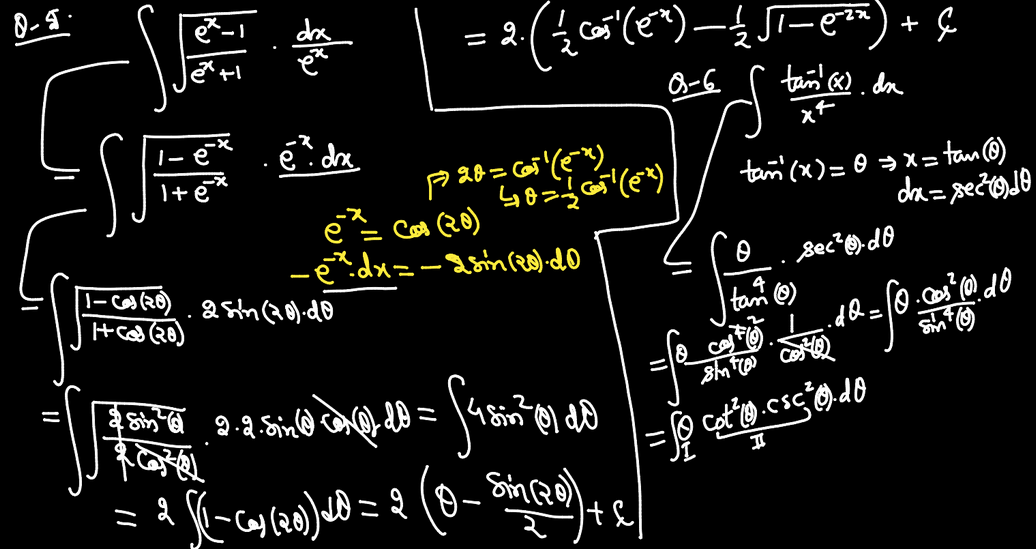 Q-5 ∫ √((e^x-1)/(e^x+1)) · dx/e^x
= ∫ √((1-e^-x)/(1+e^-x)) · e^-x · dx
e^-x = cos(2θ) ⇒ 2θ = cos^-1(e^-x)
↳ θ = 1/2 cos^-1(e^-x)
-e^-x · dx = -2sin(2θ) · dθ
= ∫ √((1-cos(2θ))/(1+cos(2θ))) · 2sin(2θ) · dθ
= ∫ √((2sin²(θ))/(2cos²(θ))) · 2·2·sin(θ) cos(θ) dθ = ∫ 4sin²(θ) dθ
= 2 ∫(1-cos(2θ)) dθ = 2 (θ - sin(2θ)/2) + C
= 2·(1/2 cos^-1(e^-x) - 1/2 √(1-e^-2x)) + C
Q-6 ∫ tan^-1(x)/x^4 · dx
tan^-1(x) = θ ⇒ x = tan(θ)
dx = sec²(θ)dθ
= ∫ θ/tan^4(θ) · sec²(θ)·dθ
= ∫ θ cos^4(θ)/sin^4(θ) · 1/cos²(θ) · dθ = ∫ θ · cos²(θ)/sin^4(θ) · dθ
= ∫ θ cot²(θ) · csc²(θ) · dθ
I II